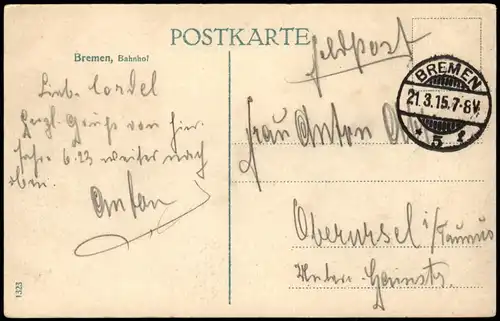 POSTKARTE
Bremen, Bahnhof
Feldpost
BREMEN
21.3.15.7-8V.
* 5 f
Liebe Cordel
Herzl. Grüße von hier
fahre 6.23 weiter nach
oben.
Anton
Frau Anton
Oberursel i/Taunus
Untere Hainstr.
1323